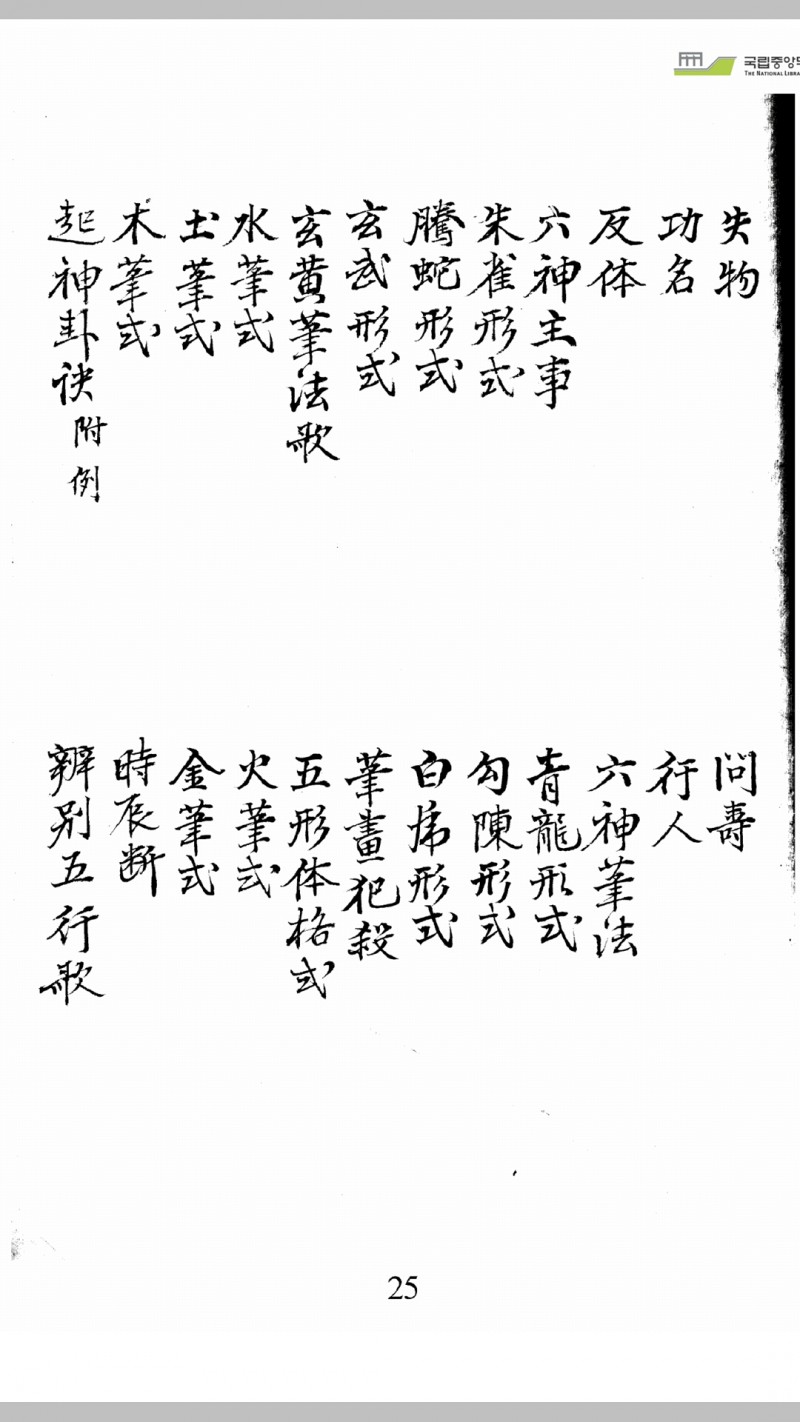 국립중앙
THE NATIONAL LIBRA
失物　問壽
功名　行人
反体　六神筆法
六神主事　青龍形式
朱雀形式　勾陳形式
騰蛇形式　白虎形式
玄武形式　筆畫犯殺
玄黄筆法歌　五形体格式
水筆式　火筆式
土筆式　金筆式
木筆式　時辰断
起神卦訣附例　辨別五行歌
25